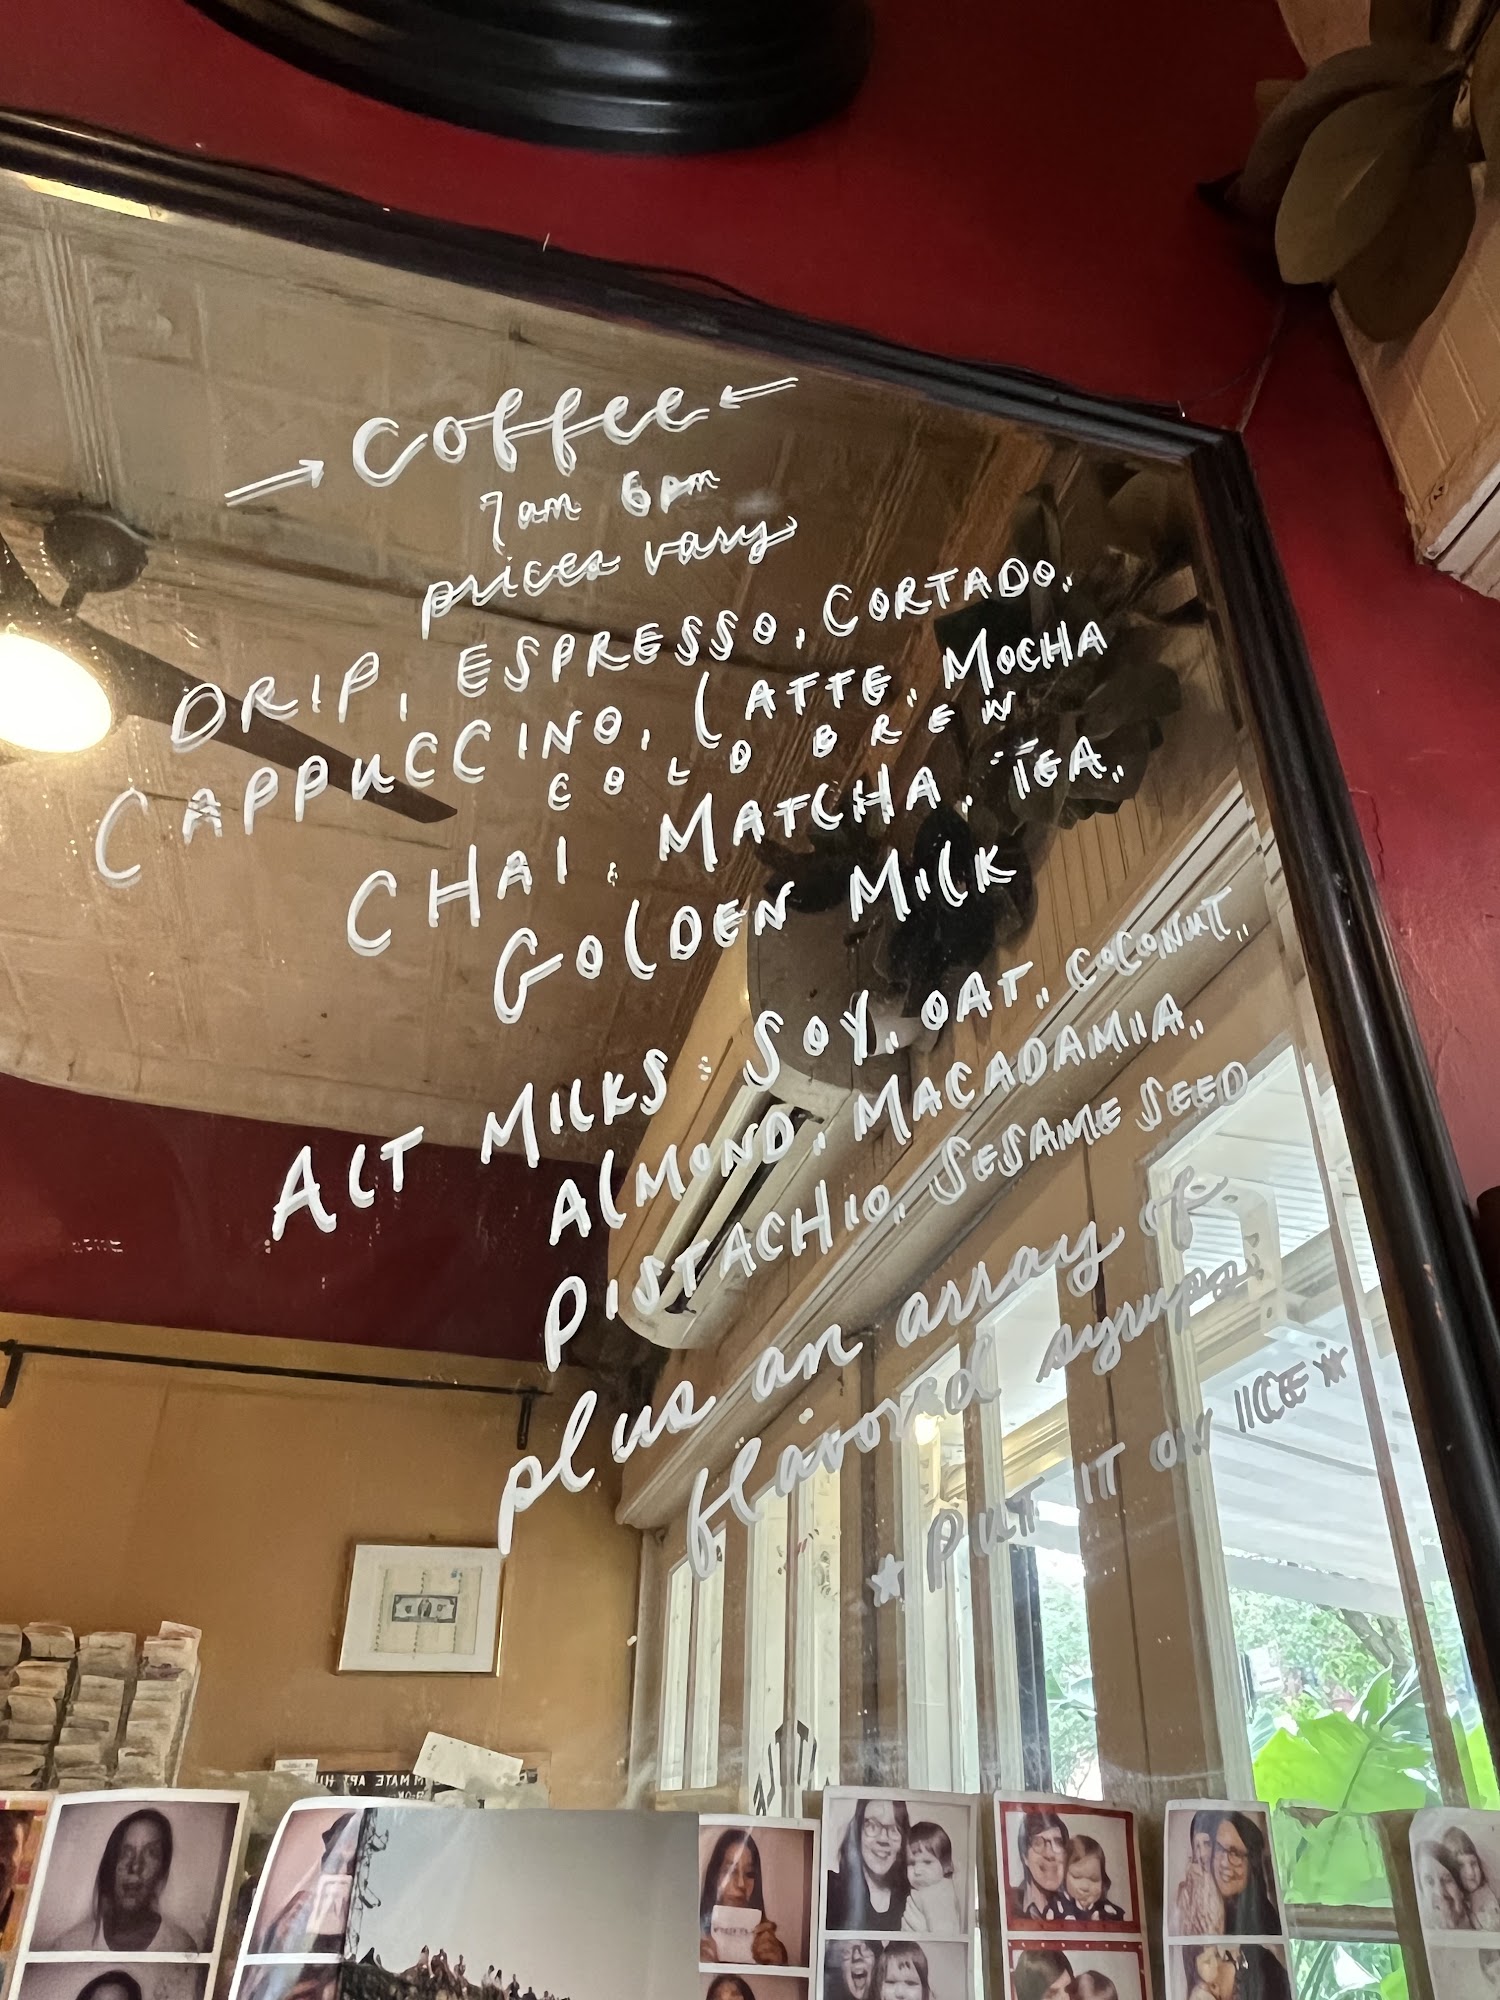 → Coffee ←
7am 6pm
prices vary
DRIP, ESPRESSO, CORTADO,
CAPPUCCINO, LATTE, MOCHA
COLD BREW
CHAI, MATCHA, TEA,
GOLDEN MILK
ALT MILKS: SOY, OAT, COCONUT,
ALMOND, MACADAMIA,
PISTACHIO, SESAME SEED
plus an array of
flavored syrups
★ PUT IT ON ICE ★